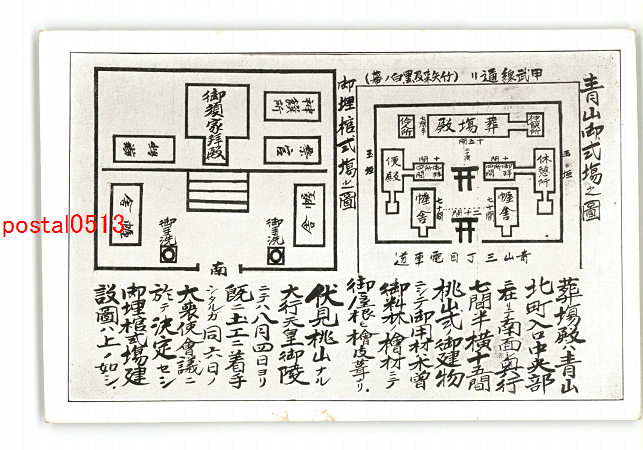 青山御式場之圖
甲武線通リ
葬場殿
休憩所
便殿
幄舎
幄舎
七十間
七十間
十五間
二十間
玉垣
玉垣
青山三丁目電車道
御埋棺式場之圖
御須家拜殿
幄舎
御手洗
御手洗
南
葬塲殿ハ青山
北町入口中央部
在リテ南面奥行
七間半横十五間
桃山式御建物
ニシテ御用材木曽
御料林ノ檜材ニテ
御屋根ハ檜皮葺ナリ。
伏見桃山ナル
大行天皇御陵
ニテハ八月四日ヨリ
既ニ土工ニ着手
シタルガ同六日ノ
大喪使會議ニ
於テ決定セシ
御埋棺式塲建
設圖ハ上ノ如シ。
postal0513